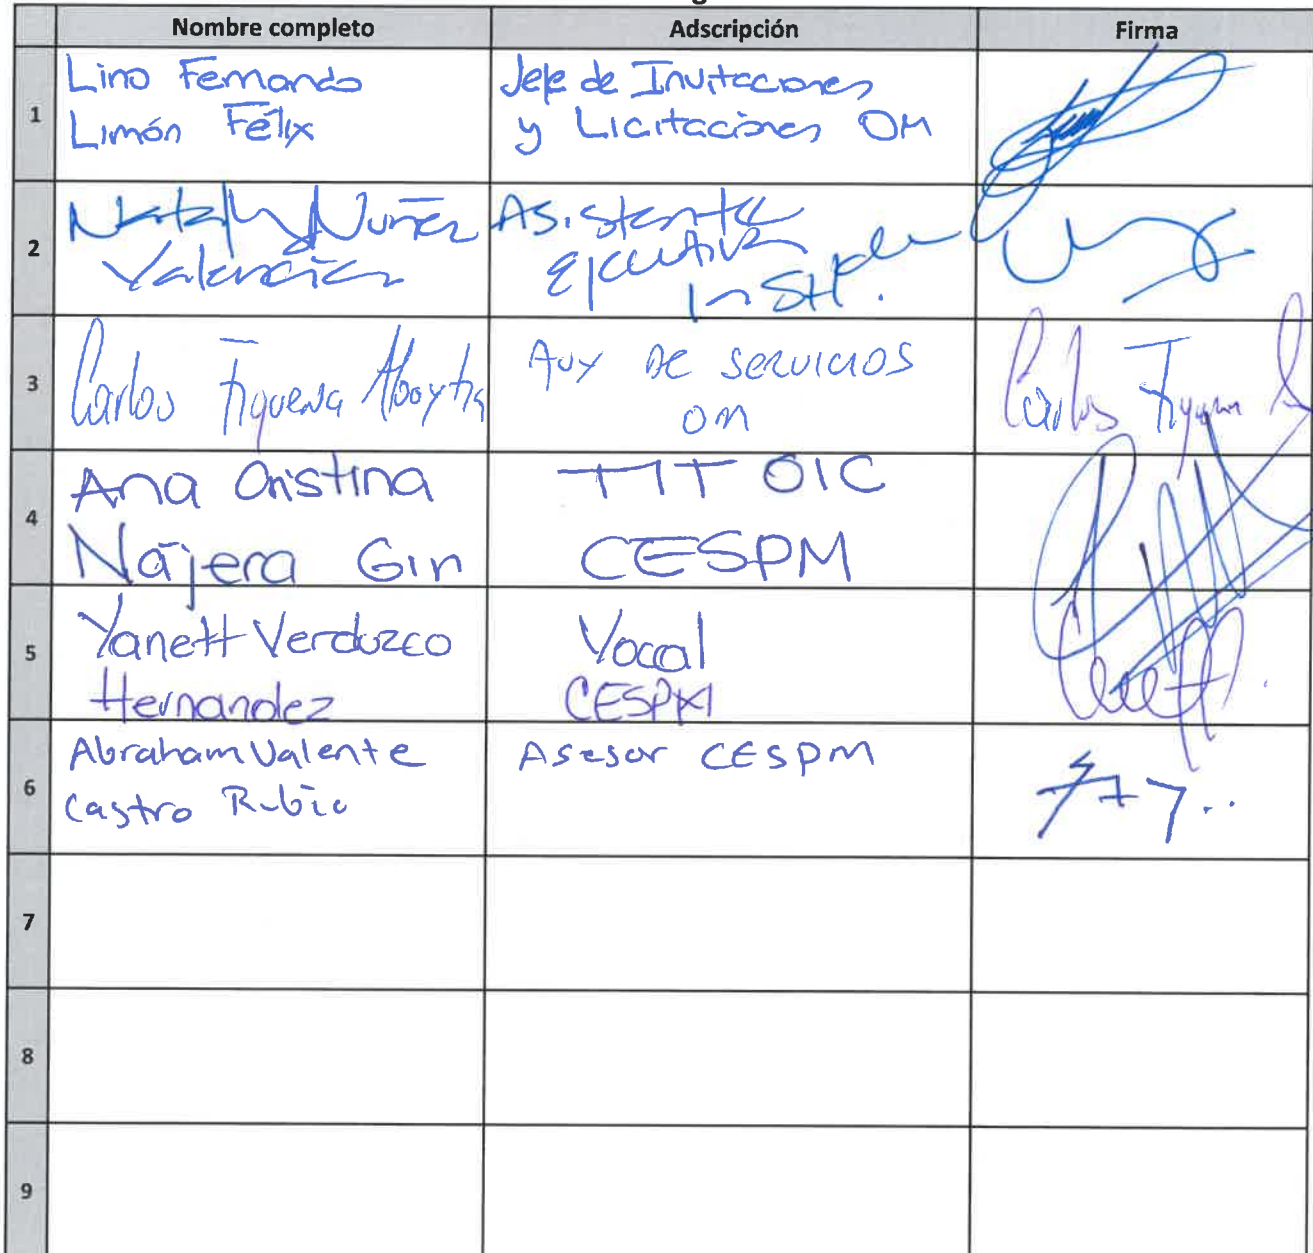 Nombre completo Adscripción Firma
1
Lino Fernando
Limón Félix
Jefe de Invitaciones
y Licitaciones OM
2
Nataly Nuñez
Valencia
Asistente
Ejecutiva
3
Carlos Figueroa
Aux de servicios
OM
Carlos
4
Ana Cristina
Nájera Gin
TIT OIC
CESPM
5
Yanett Verduzco
Hernandez
Vocal
CESPM
6
Abraham Valente
Castro Rubio
Asesor CESPM
7
8
9